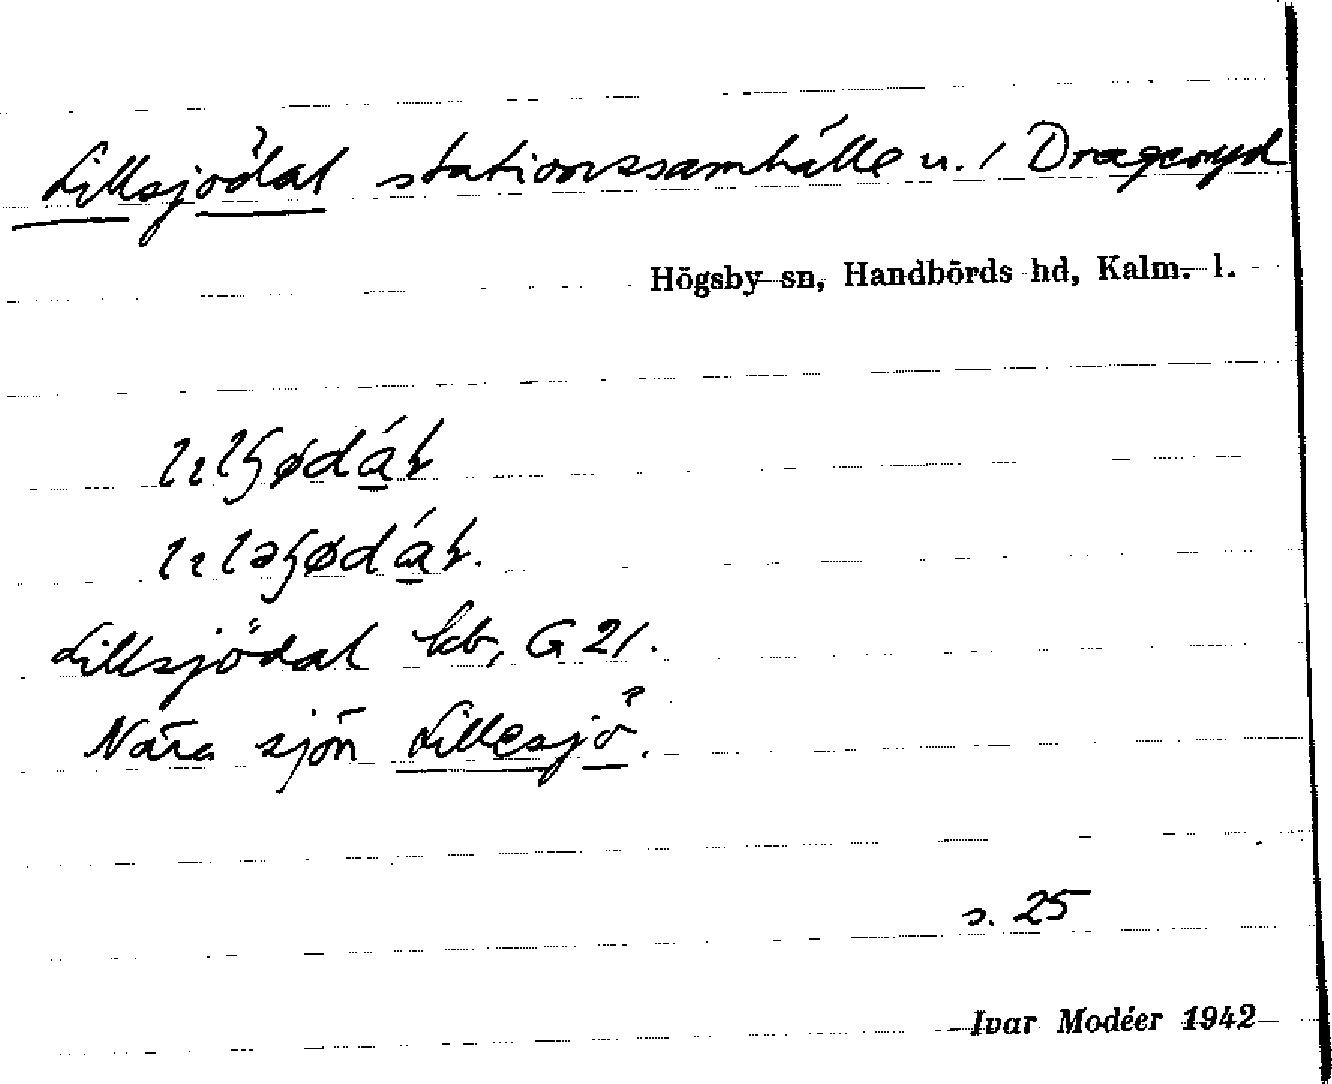 Lillsjödal stationssamhälle u. 1 Drageryd
Högsby sn, Handbörds hd, Kalm. l.
Lillsjödal kb, G 21.
Nära sjön Lillesjö.
s. 25
Ivar Modéer 1942